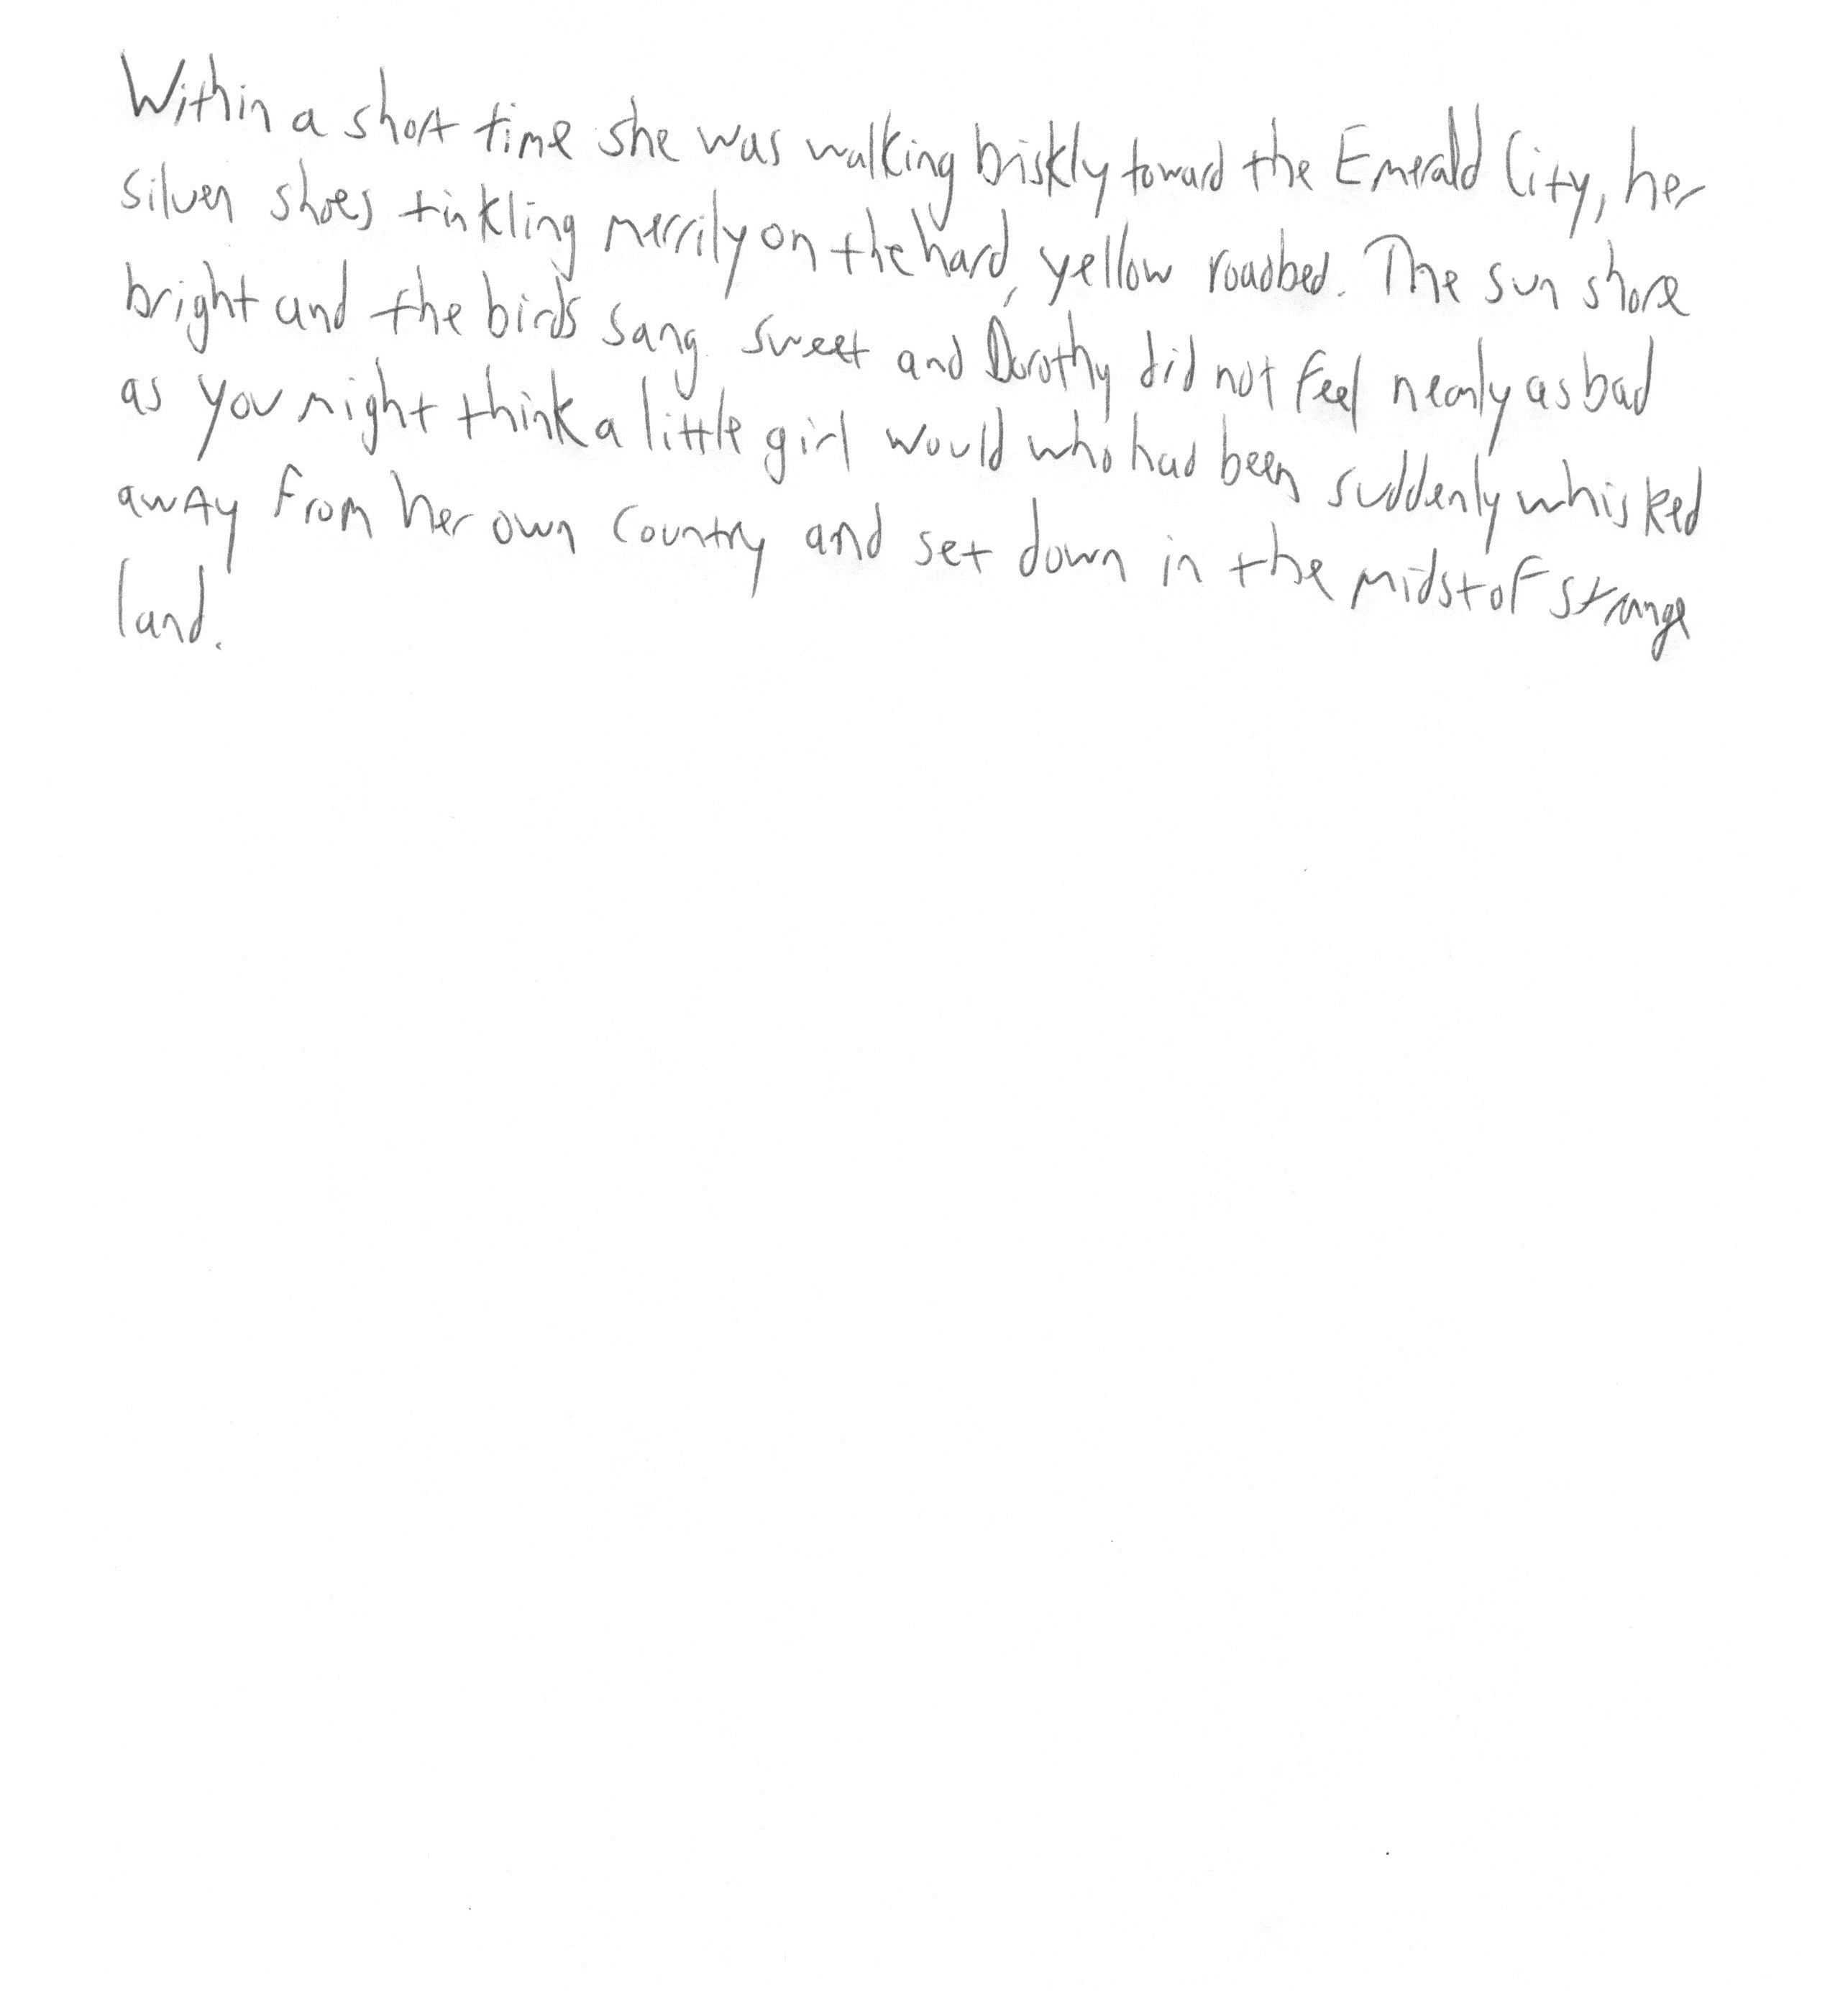 Within a short time she was walking briskly toward the Emerald City, her
silver shoes tinkling merrily on the hard, yellow roadbed. The sun shone
bright and the birds sang sweet and Dorothy did not feel nearly as bad
as you might think a little girl would who had been suddenly whisked
away from her own country and set down in the midst of strange
land.